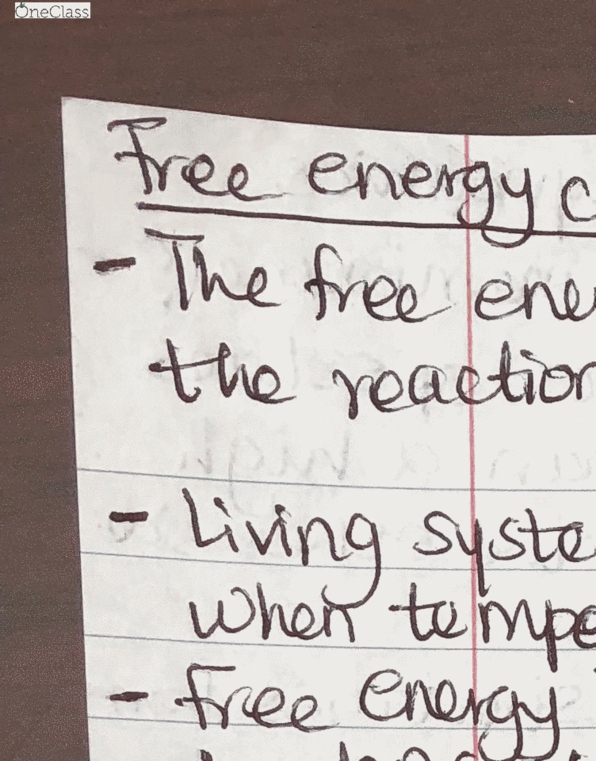 OneClass
Free energy c
- The free ene
the reaction
- Living syste
when tempe
- free energy